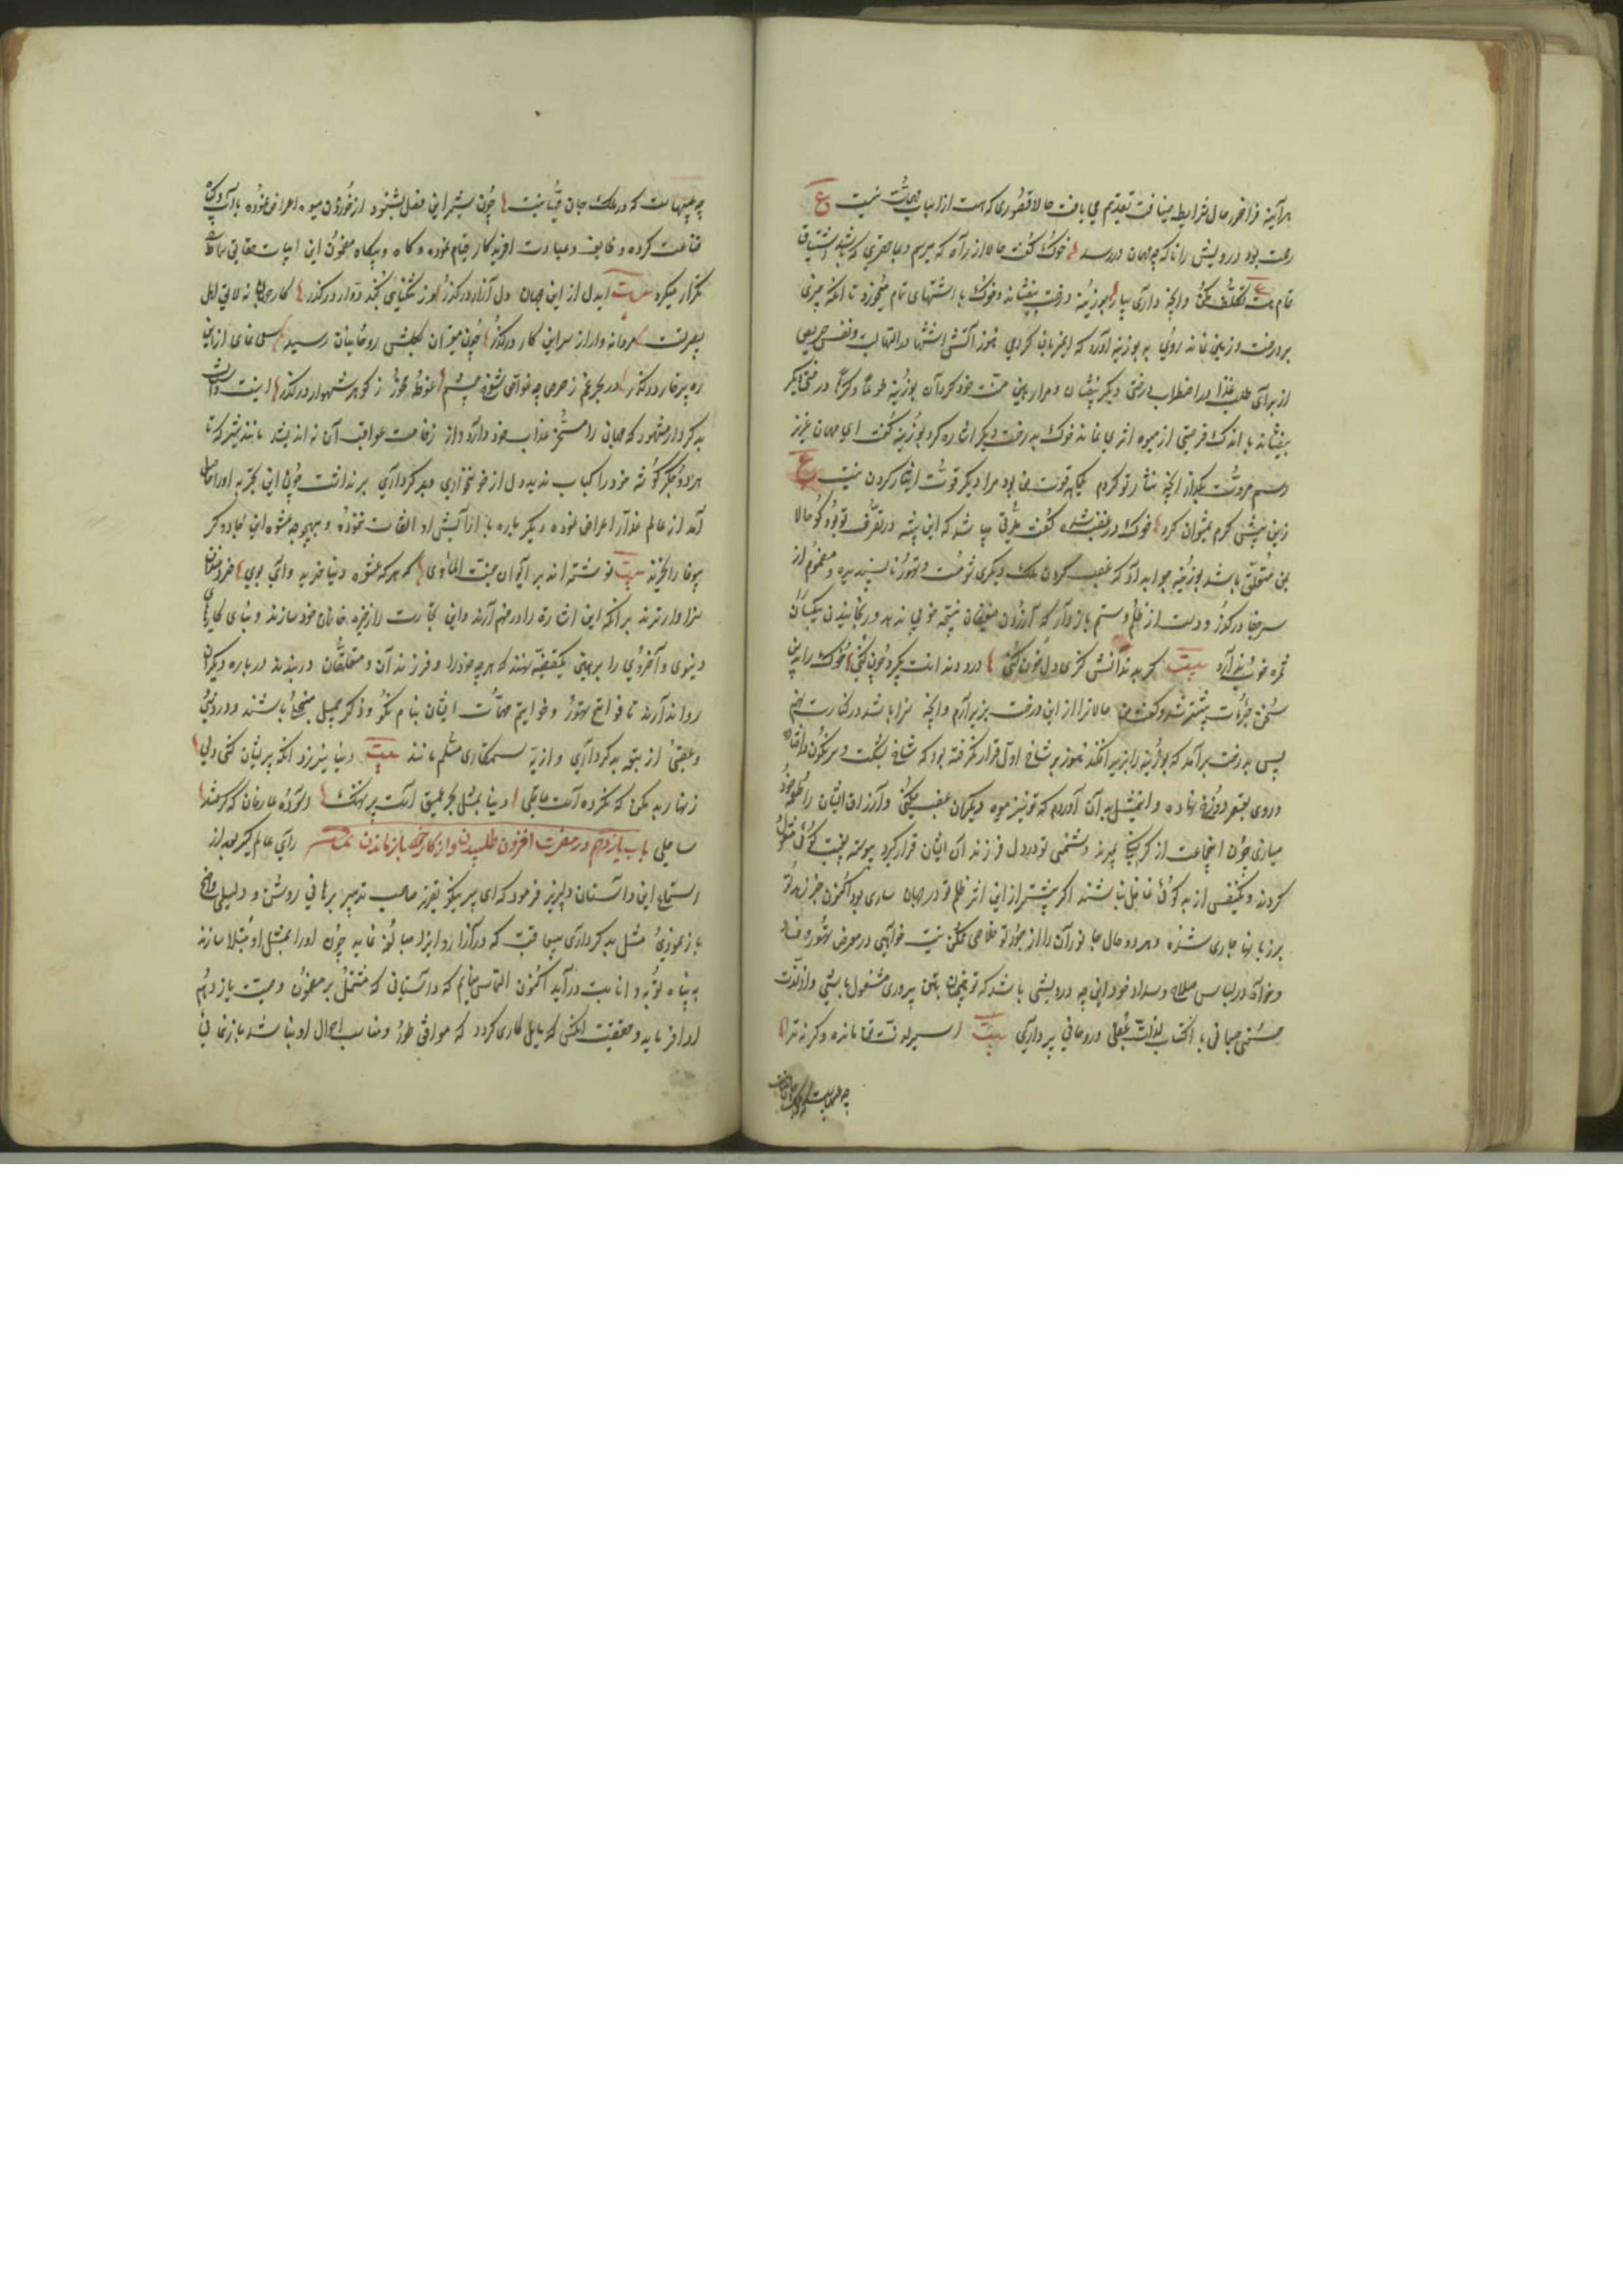 هرآینه فراخور حال شرایط ضیافت تقدیم می یافت حالا قصوری که هست از اسباب نیست ع
بود درویش را ناگه چو مهمان دررسد خوک گفت حالا از راه که میرسم
تمام است تکلف مکن و آنچه داری بیار بوزینه درخت بیفشاند و خوک با اشتهای تمام میخورد تا آنکه چیزی
بر درخت و زمین نماند روی به بوزینه آورد که ای میزبان گرامی هنوز آتش اشتها در التهاب و نفس حریص
از برای طلب غذا در اضطراب درختی دیگر بیفشان و مرا رهین منت خود گردان بوزینه طوعا و کرها درختی دیگر
بیفشاند باندک فرصتی از میوه اثری نماند خوک بدرخت دیگر اشاره کرد بوزینه گفت ای مهمان عزیز
رسم مروت بگذار آنچه نثار تو کردم یکماهه قوت من بود مرا دیگر قوت ایثار کردن نیست ع
زین بیش کرم نمیتوان کرد خوک در غضب شد و گفت مدتی شد که این بیشه در تصرف تو بود گو حالا
بمن متعلق باشد بوزینه جواب داد که غصب کردن ملک دیگری شومست و تهور ناپسندیده و مغموم از
سر جفا درگذر و دست از ظلم و ستم بازدار که آزردن ضعیفان نتیجه خوبی ندهد و رنجانیدن بیکسان
ثمره خوب نیارد بیت گر بدندانش کزی دل خون کنی درد دندانت بگیرد چون کنی خوک را ازین
سخن حرارت بیشتر شد و گفت من حالا ترا از این درخت بزیر آرم و آنچه سزا باشد در کنارت نهم
پس بدرخت برآمد که بوزینه را بزیر افکند هنوز بر شاخ اول قرار نگرفته بود که شاخ بشکست و سرنگون در افتاد
و روی بقعر دوزخ نهاد و این مثل بدان آوردم که تو نیز میوه دیگران غصب میکنی و ارزاق ایشان را طعمه خود
میسازی چون این جماعت از گرسنگی بمیرند دشمنی تو در دل فرزندان ایشان قرار گیرد پیوسته بغیبت گویی مشغول
گردند و یکنفس از بدگویی غافل نباشند اگر پیشتر از این اثر ظلم تو در جهان ساری بود اکنون خبر زهد تو
بر زبانها جاری شده و بهر دو حال جانوران را از جور تو خلاصی ممکن نیست خواهی در معرض تهور و فساد
و خواه در لباس صلاح و سداد خود این چه درویشی باشد که تو همچنان بتن پروری مشغول باشی و از لذت
جسمانی با اکتساب لذات عقلی و روحانی پردازی بیت اسیر لذت تن مانده و گرنه ترا
چه عیشهاست که در ملک جان مهیا نیست چون شیر این فصل بشنود از خوردن میوه اعراض نموده بآب و گیاه
قناعت کرده و وظایف و عبادت افریدگار قیام نموده و گاه و بیگاه مضمون این ابیات حقایق
تکرار میکرد بیت ایدل از این جهان دل آزار درگذر وز تنگنای گنبد دوار درگذر کار جهان نه لایق اهل
بصیرتست مردانه وار از سر این کار درگذر چون میتوان بگلشن روحانیان رسید سعی نمای از این
ره پرخار درگذر در بحر غم ز حرص چه غواصی شوی چشم غوطه مخور ز گوهر شهوار درگذر اینست داستان
بدکردار متهور که جهانی را مسخر عذاب خود دارد و از وخامت عواقب آن نه اندیشد مانند شیر که تا
هر دو جگرگوشه خود را کباب ندید دل از خونخواری و بدکرداری برنداشت چون این تجربه او را حاصل
آمد از عالم غدار اعراض نموده دیگرباره با آرایش او التفات ننموده و بهیچ وجه عشوه این عجوز مکار
بیوفا را نخرید بیت نوشته اند بر ایوان جنت المأوی که هر که عشوه دنیا خرید وای بوی خردمندان
سزاوارترند بر آنکه این اشارت را در فهم آرند و این تجارت را ذخیره خان و مان خود سازند و بنای کارهای
دنیوی و اخروی را بر همین قضیه نهند که هر چه خود را و فرزندان و متعلقان در پسندند درباره دیگران
روا ندارند تا فواتح امور و خواتیم مهمات ایشان بنام نیکو و ذکر جمیل متحلی باشند و در دنیی
و عقبی از تبعه بدکرداری و اذیت ستمکاری مسلم مانند بیت دنیا نیرزد آنکه پریشان کنی دلی
زنهار بد مکن که نکرده است عاقلی دنیا بمثل بحر عمیق است پر نهنگ آسوده عارفان که گرفتند
ساحلی باب یازدهم در مضرت افزون طلبیدن و از کار خود بازماندن رای عالم گیر بعد از
استماع این داستان دلپذیر فرمود که ای پیر نیکو تقریر صاحب تدبیر برهانی روشن و دلیلی واضح
باز نمودی مثل بدکرداری بی عاقبت که در آزار و ایذا مبالغه نماید چون او را بمثل او مبتلا سازند
به پناه توبه و انابت درآید اکنون التماس مینمایم که داستانی که مشتمل بر مضمون وصیت یازدهم
ادا فرماید و حقیقت آنکس که مایل کاری گردد که موافق طور و مناسب احوال او نباشد باز نمایی